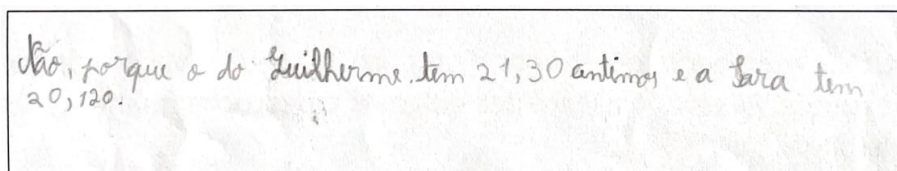 Não, porque o do Guilherme tem 21,30 antimos e a Sara tem
20,120.